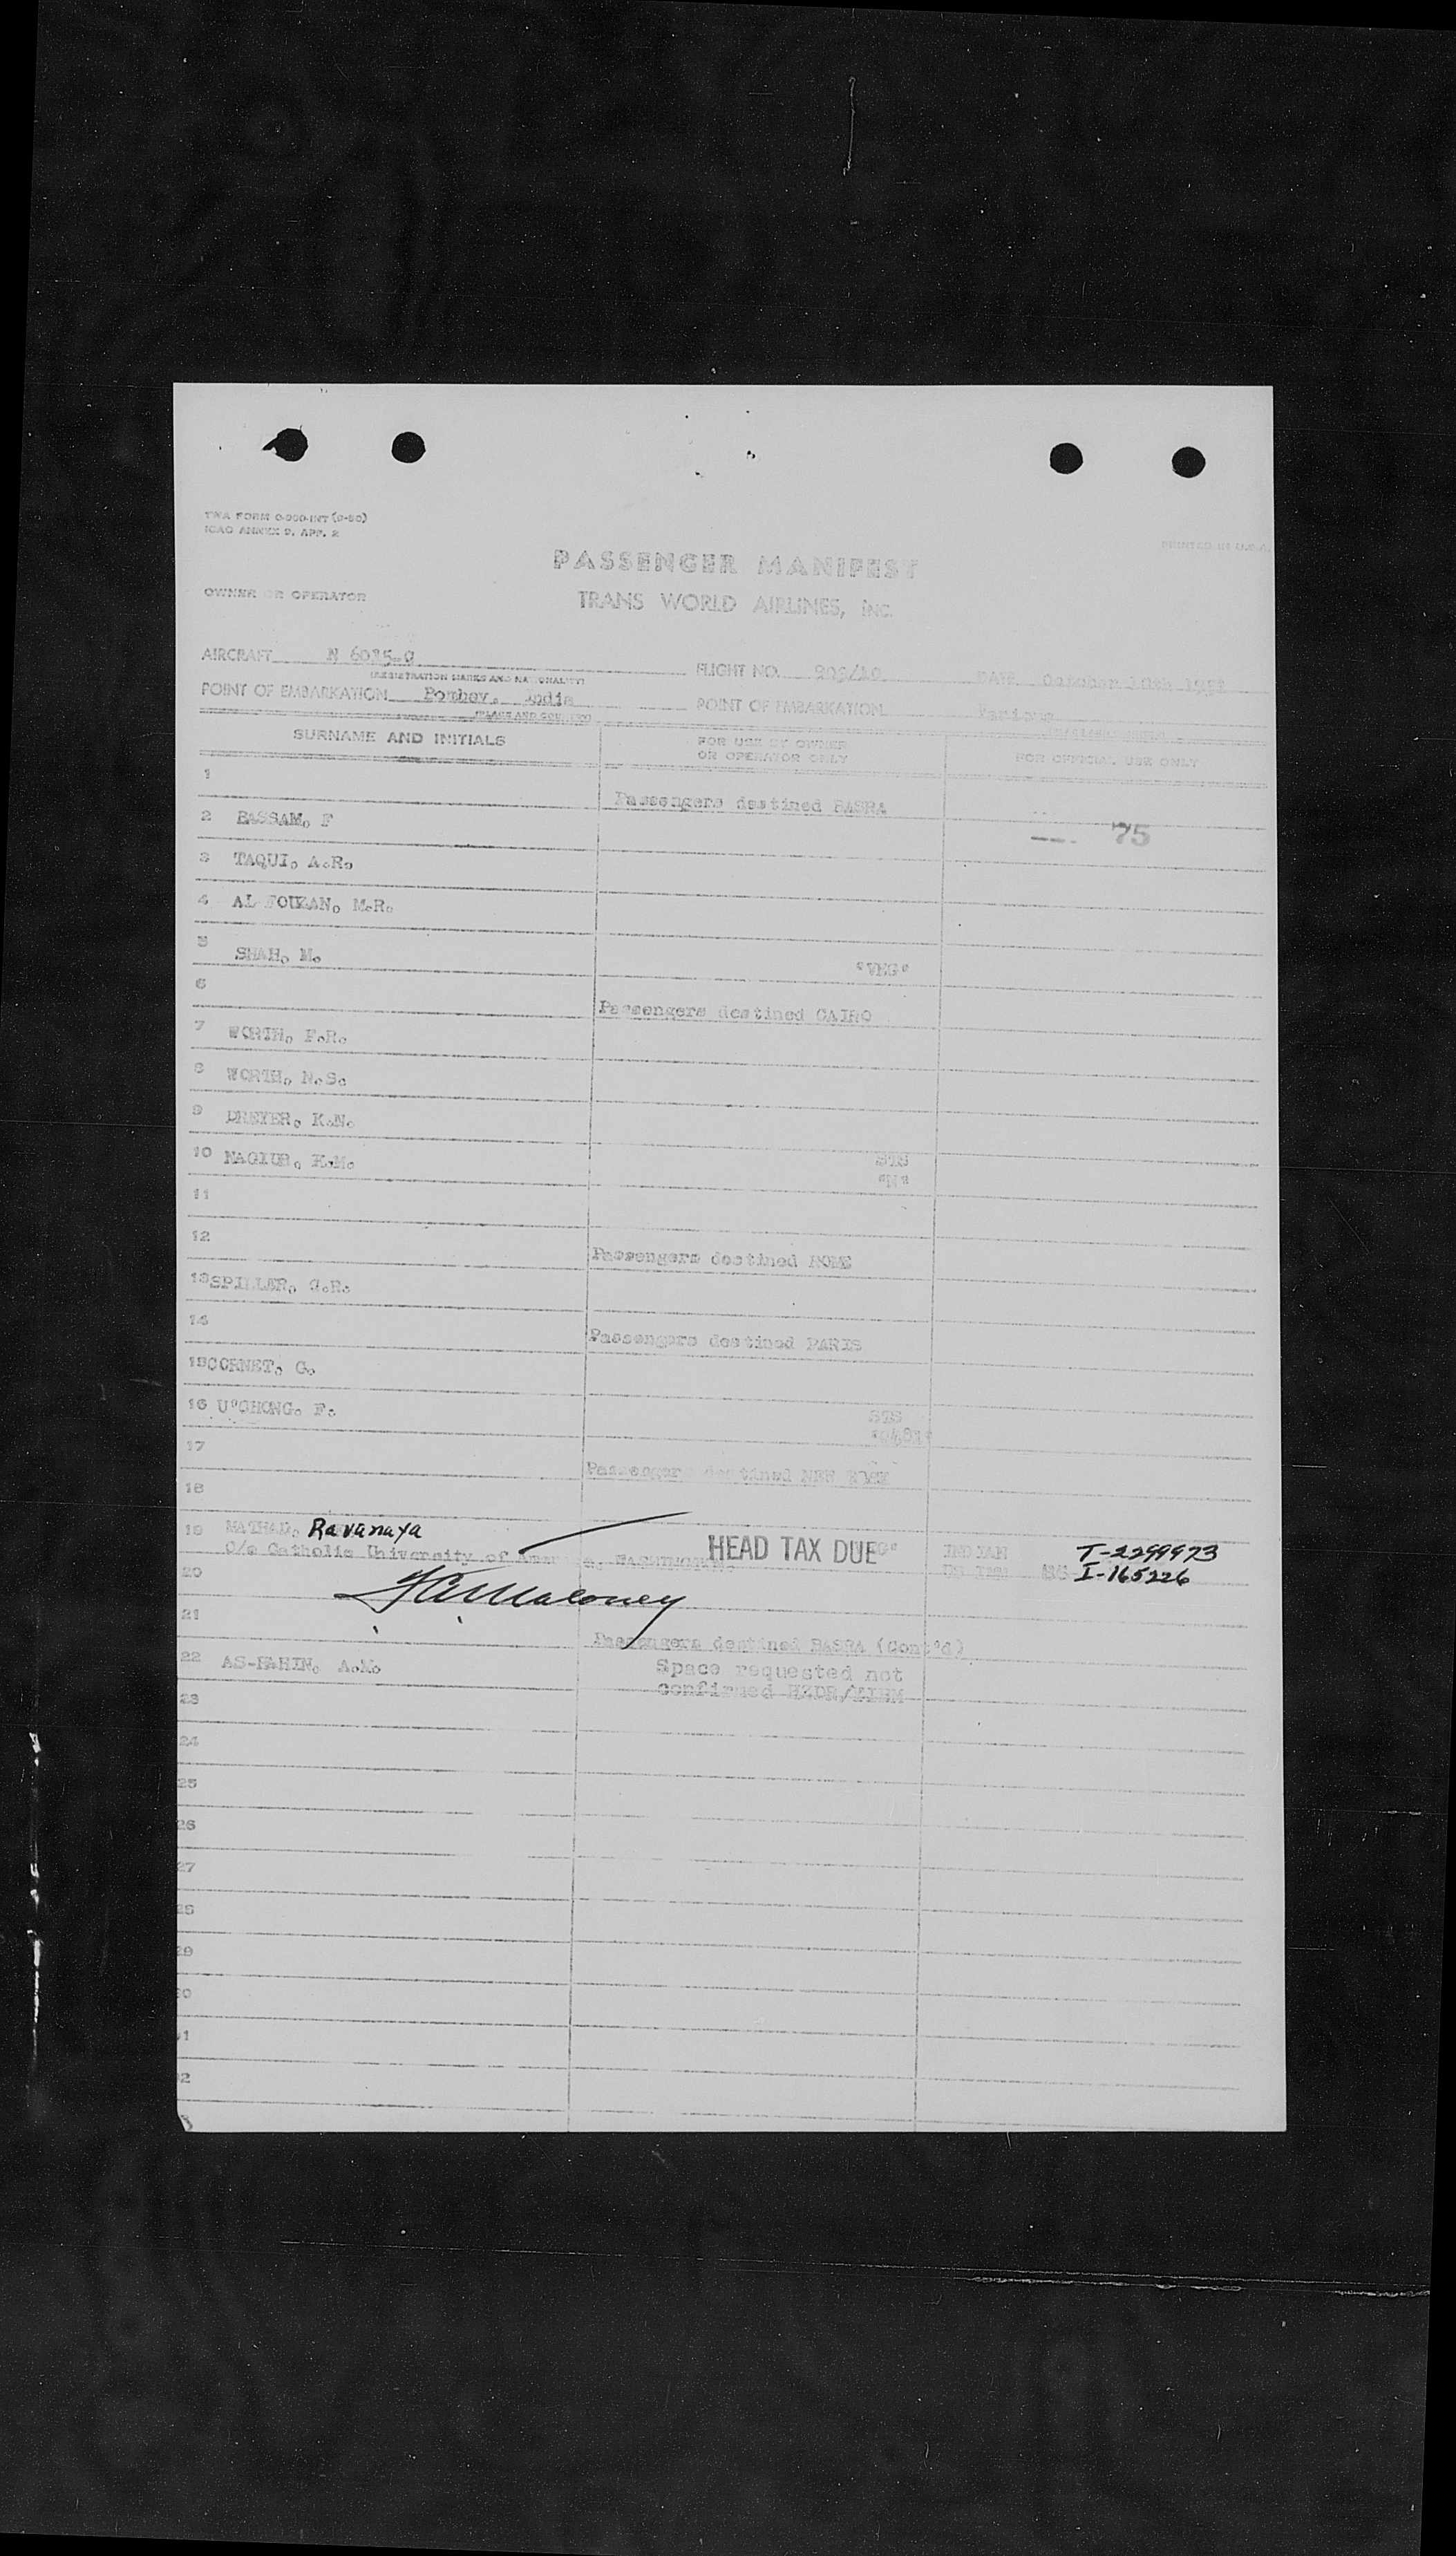 TWA FORM 0-900-INT (9-50)
ICAO ANNEX 9, APP. 2
PRINTED IN U.S.A.
PASSENGER MANIFEST
OWNER OR OPERATOR
TRANS WORLD AIRLINES, INC.
AIRCRAFT
(REGISTRATION MARKS AND NATIONALITY)
FLIGHT NO.
DATE October 10th
POINT OF EMBARKATION Bombay, India
(PLACE AND COUNTRY)
POINT OF EMBARKATION Various
SURNAME AND INITIALS
FOR USE BY OWNER
OR OPERATOR ONLY
FOR OFFICIAL USE ONLY
1
Passengers destined BASRA
2 BASSAM, F
75
3 TAQUI, A.R.
4 AL FOUZAN, M.R.
5 SHAH, M.
"VEG"
6
Passengers destined CAIRO
7 WORTH, F.R.
8 WORTH, N.S.
9 DREYER, K.N.
10 NAGIUB, K.M.
STS
"N"
11
12
Passengers destined ROME
13 SPILLER, G.R.
14
Passengers destined PARIS
15 CORNET, G.
16 U'CHONG, F.
STS
17
Passengers destined NEW YORK
18
19 MATHAD, Ravanaya
C/o Catholic University of America, WASHINGTON
HEAD TAX DUE
INDIAN
T-2299973
I-165226
20
21
Passengers destined BASRA (Cont'd)
22 AS-FAHIN, A.M.
Space requested not
confirmed
23
24
25
26
27
28
29
30
31
32